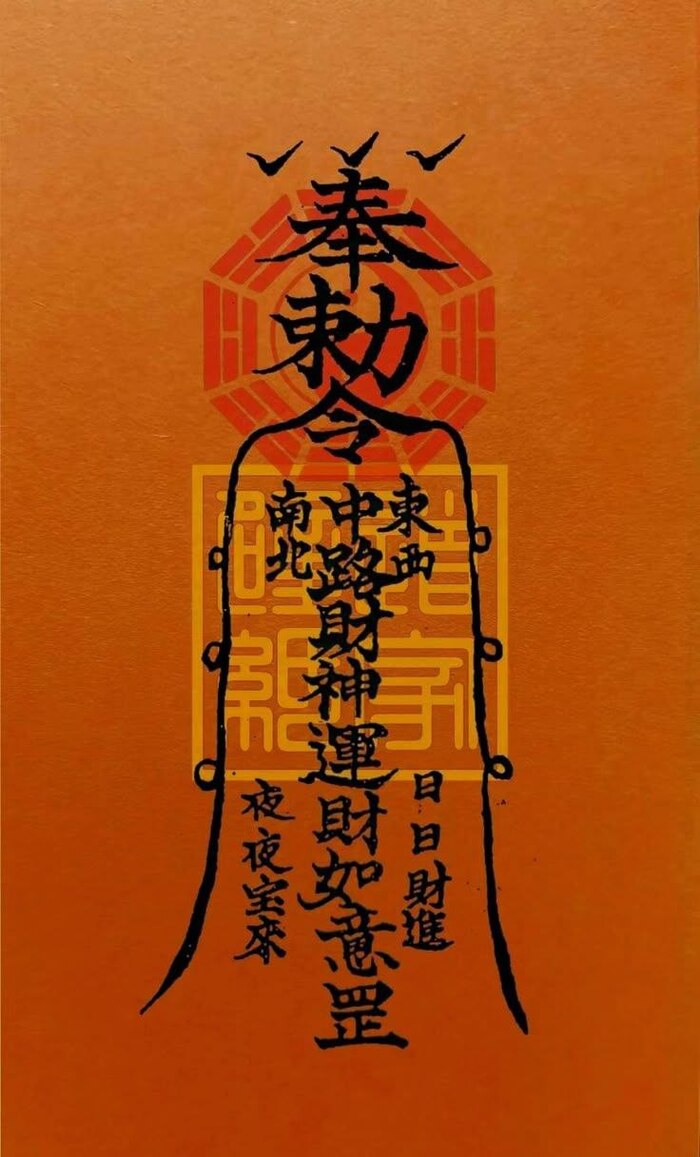 奉勅令
東西
南北
中路財神運財如意罡
日日財進
夜夜宝來